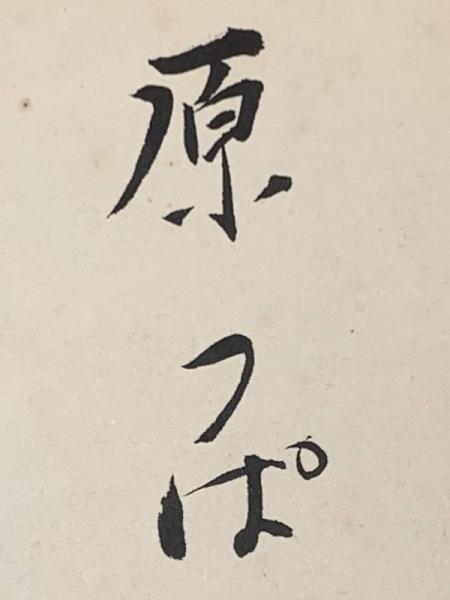 原っぱ